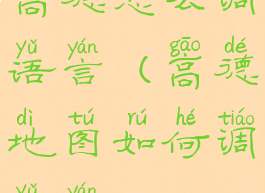 调
yǔ yán gāo dé
语言（高德
dì tú rú hé tiáo
地图如何调
yǔ yán